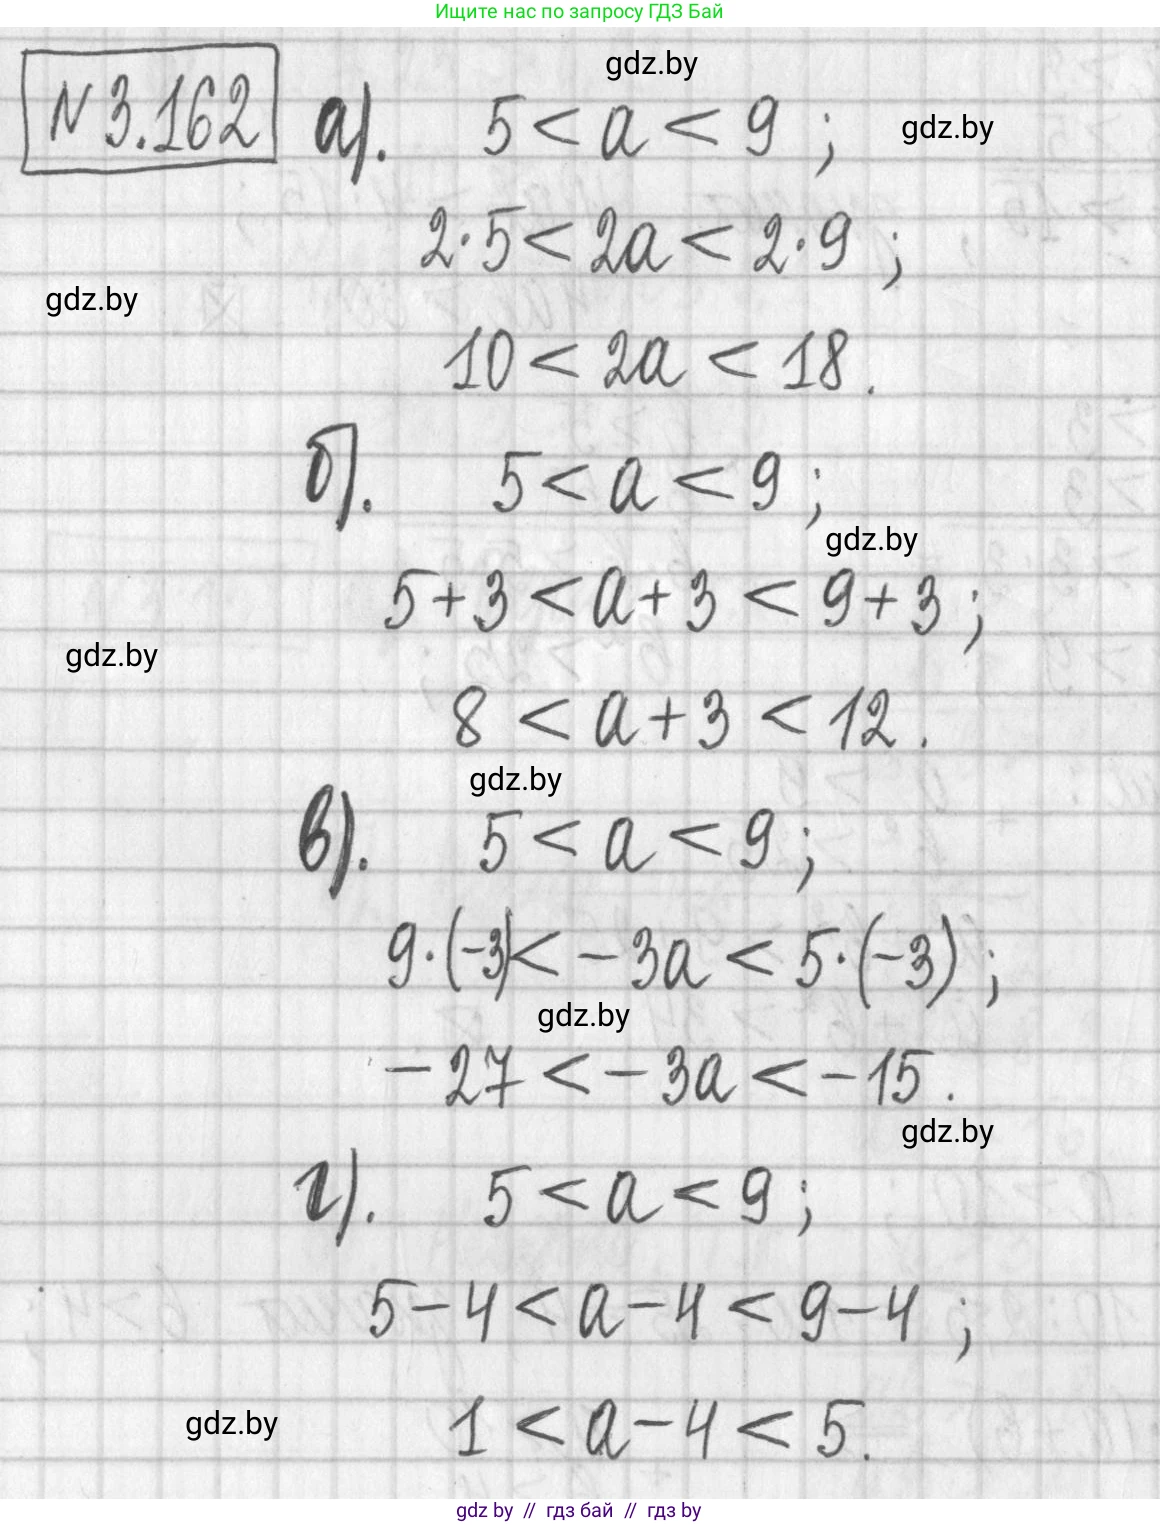 Ищите нас по запросу ГДЗ Бай
gdz.by
N 3.162 а). 5 < a < 9 ;
gdz.by
2·5 < 2a < 2·9 ;
gdz.by
10 < 2a < 18.
б). 5 < a < 9 ;
gdz.by
5+3 < a+3 < 9+3 ;
gdz.by
8 < a+3 < 12.
gdz.by
в). 5 < a < 9 ;
9·(-3) < -3a < 5·(-3) ;
gdz.by
-27 < -3a < -15.
gdz.by
г). 5 < a < 9 ;
5-4 < a-4 < 9-4 ;
gdz.by
1 < a-4 < 5.
gdz by // гдз бай // гдз by